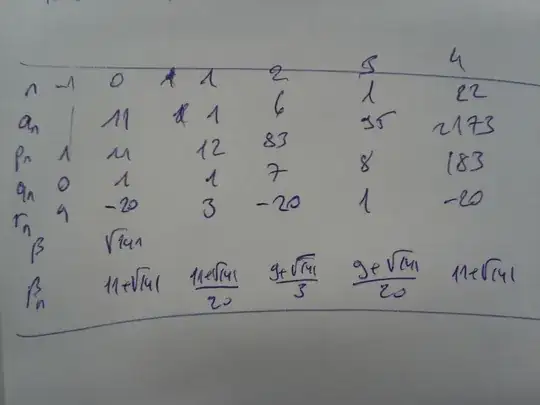 n -1 0 1 2 3 4
a_n 11 1 6 1 22
p_n 1 11 12 83 95 2173
q_n 0 1 1 7 8 183
r_n -20 3 -20 1 -20
β √141
β_n 11+√141 11+√141/20 9+√141/3 9+√141/20 11+√141